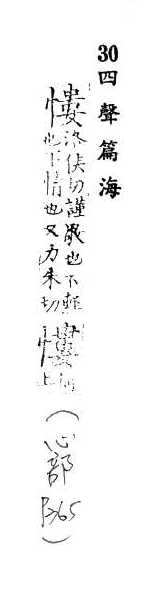 30 四聲篇海
慺洛侯切謹敬也不輕
也下情也又力朱切
同
上
(心部 P365)